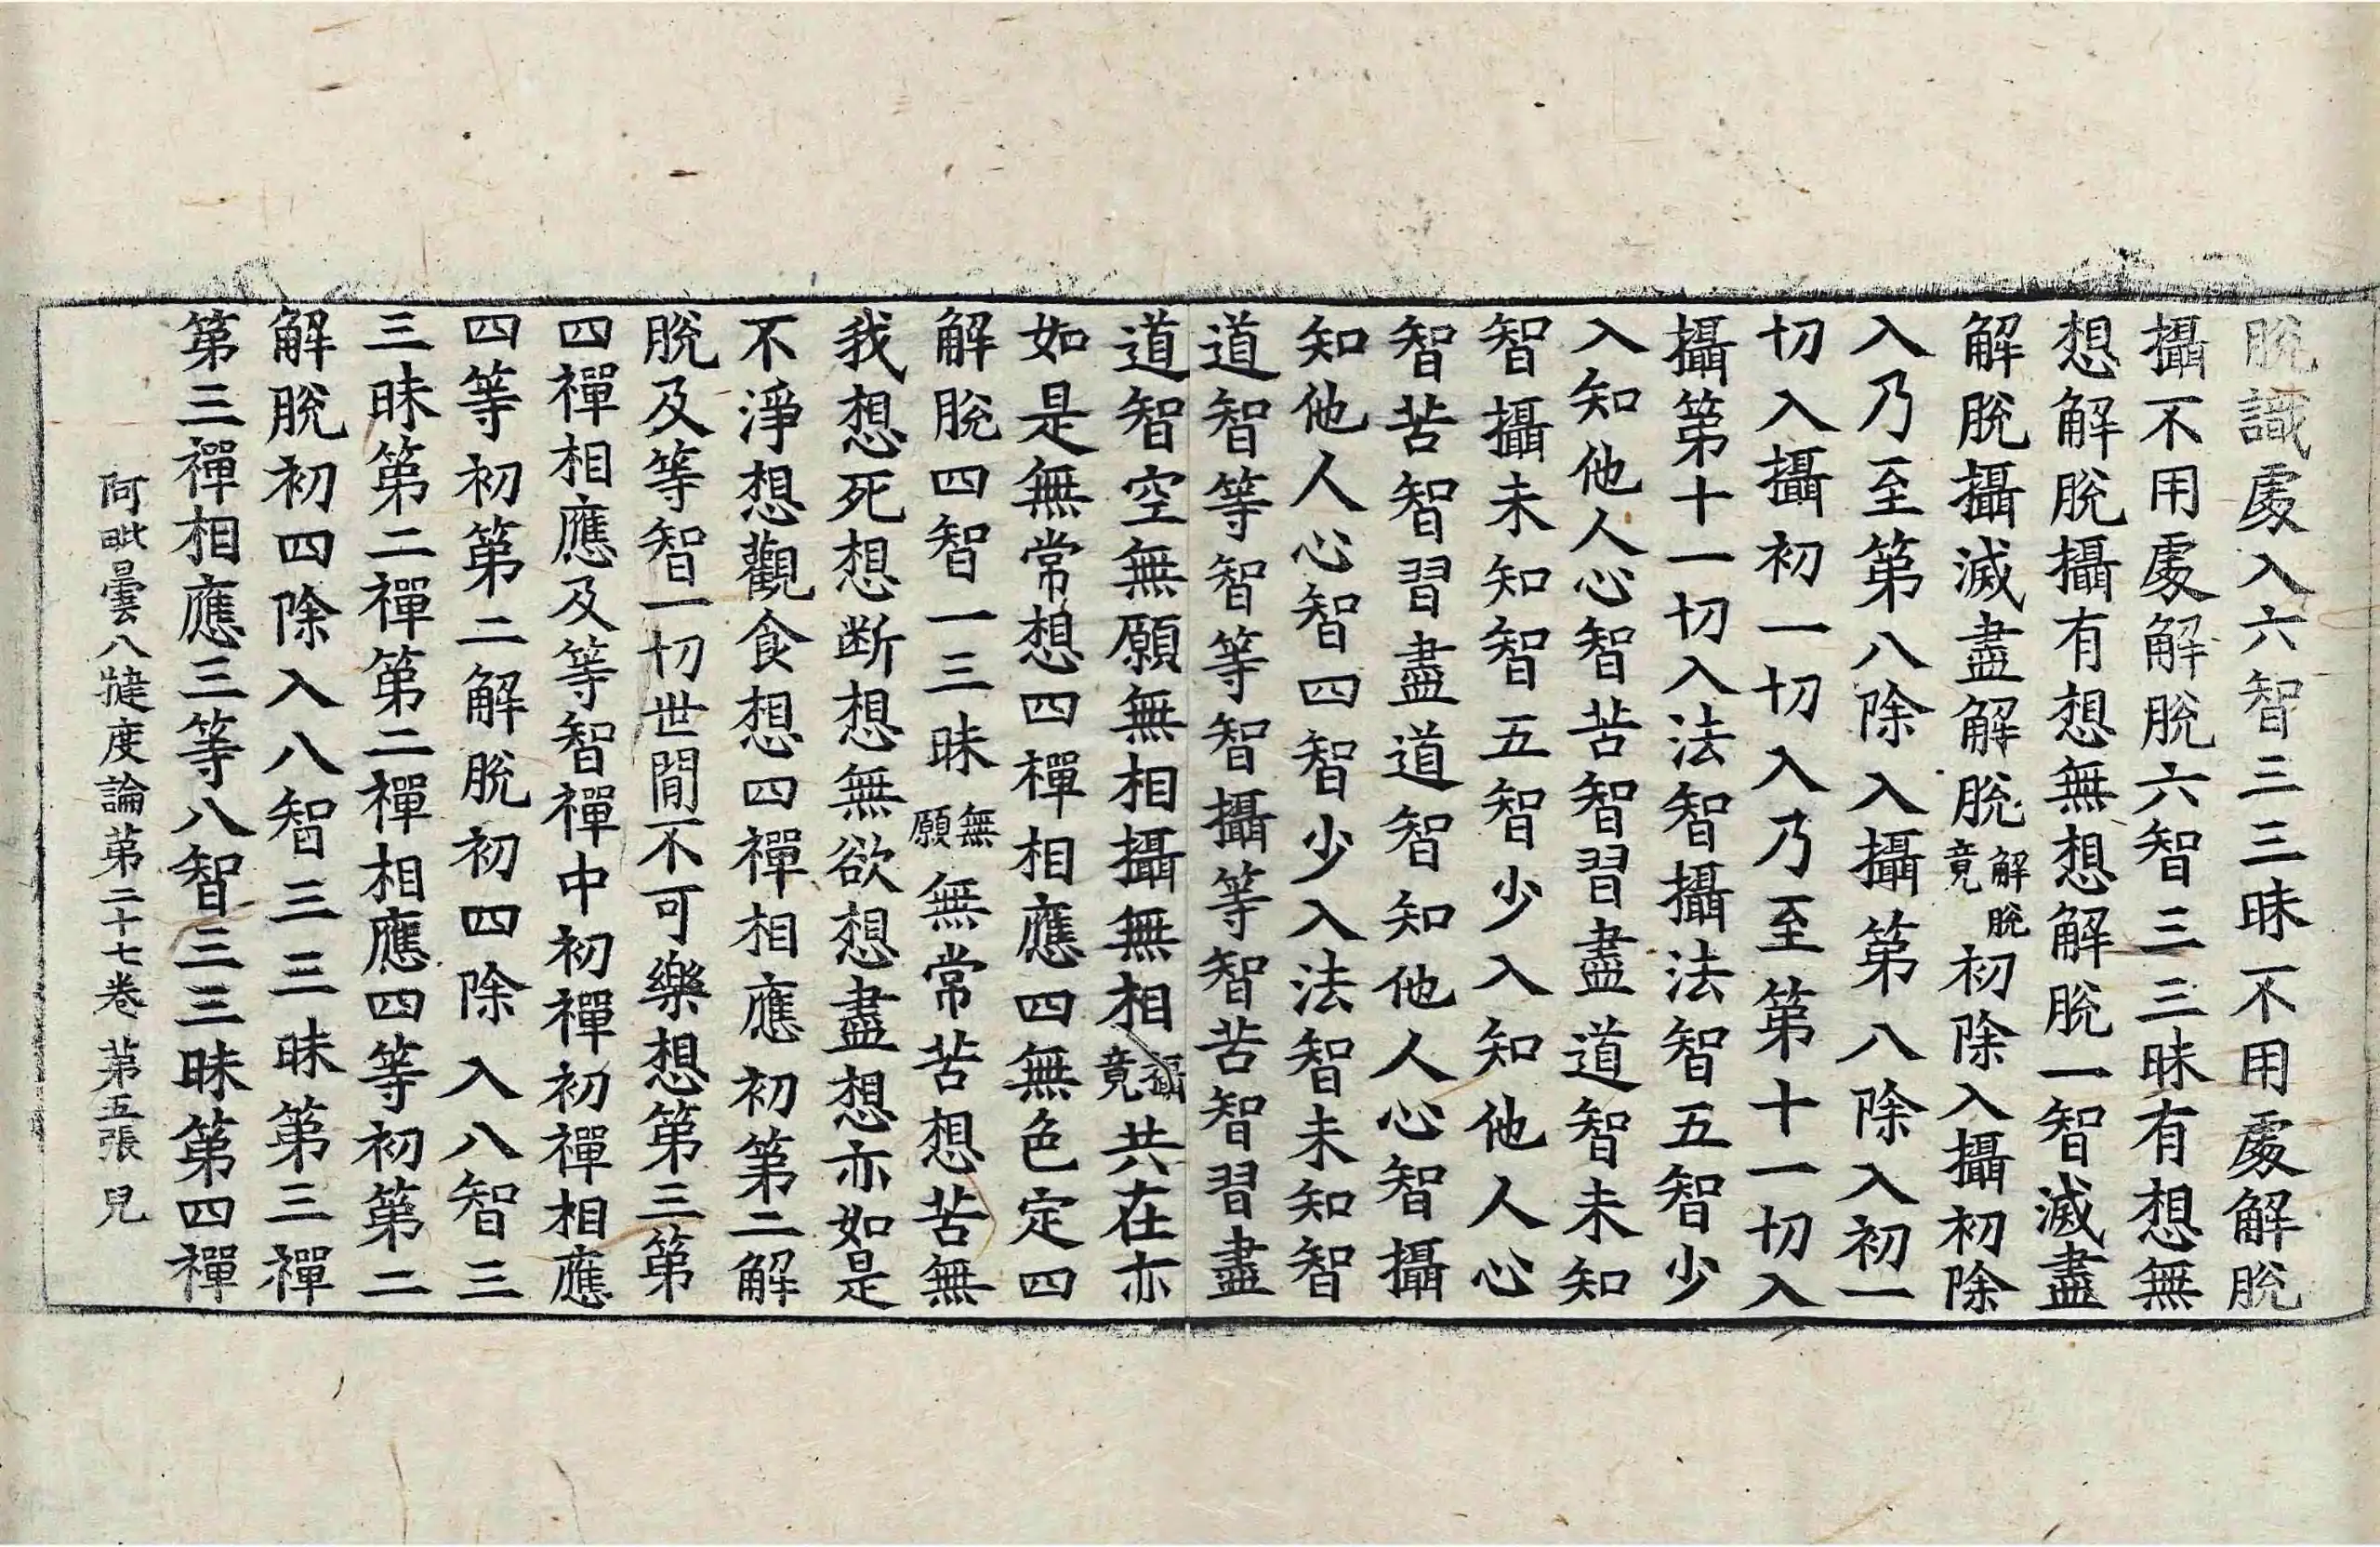 脫識處入六智三三昧不用處解脫
攝不用處解脫六智三三昧有想無
想解脫攝有想無想解脫一智滅盡
解脫攝滅盡解脫解脫竟初除入攝初除
入乃至第八除入攝第八除入初一
切入攝初一切入乃至第十一切入
攝第十一切入法智攝法智五智少
入知他人心智苦智習盡道智未知
智攝未知智五智少入知他人心
智苦智習盡道智知他人心智攝
知他人心智四智少入法智未知智
道智等智等智攝等智苦智習盡
道智空無願無相攝無相攝竟共在亦
如是無常想四禪相應四無色定四
解脫四智一三昧無願無常苦想苦無
我想死想断想無欲想盡想亦如是
不淨想觀食想四禪相應初第二解
脫及等智一切世間不可樂想第三第
四禪相應及等智禪中初禪初禪相應
四等初第二解脫初四除入八智三
三昧第二禪第二禪相應四等初第二
解脫初四除入八智三三昧第三禪
第三禪相應三等八智三三昧第四禪
阿毗曇八揵度論第二十七卷 第五張 兒